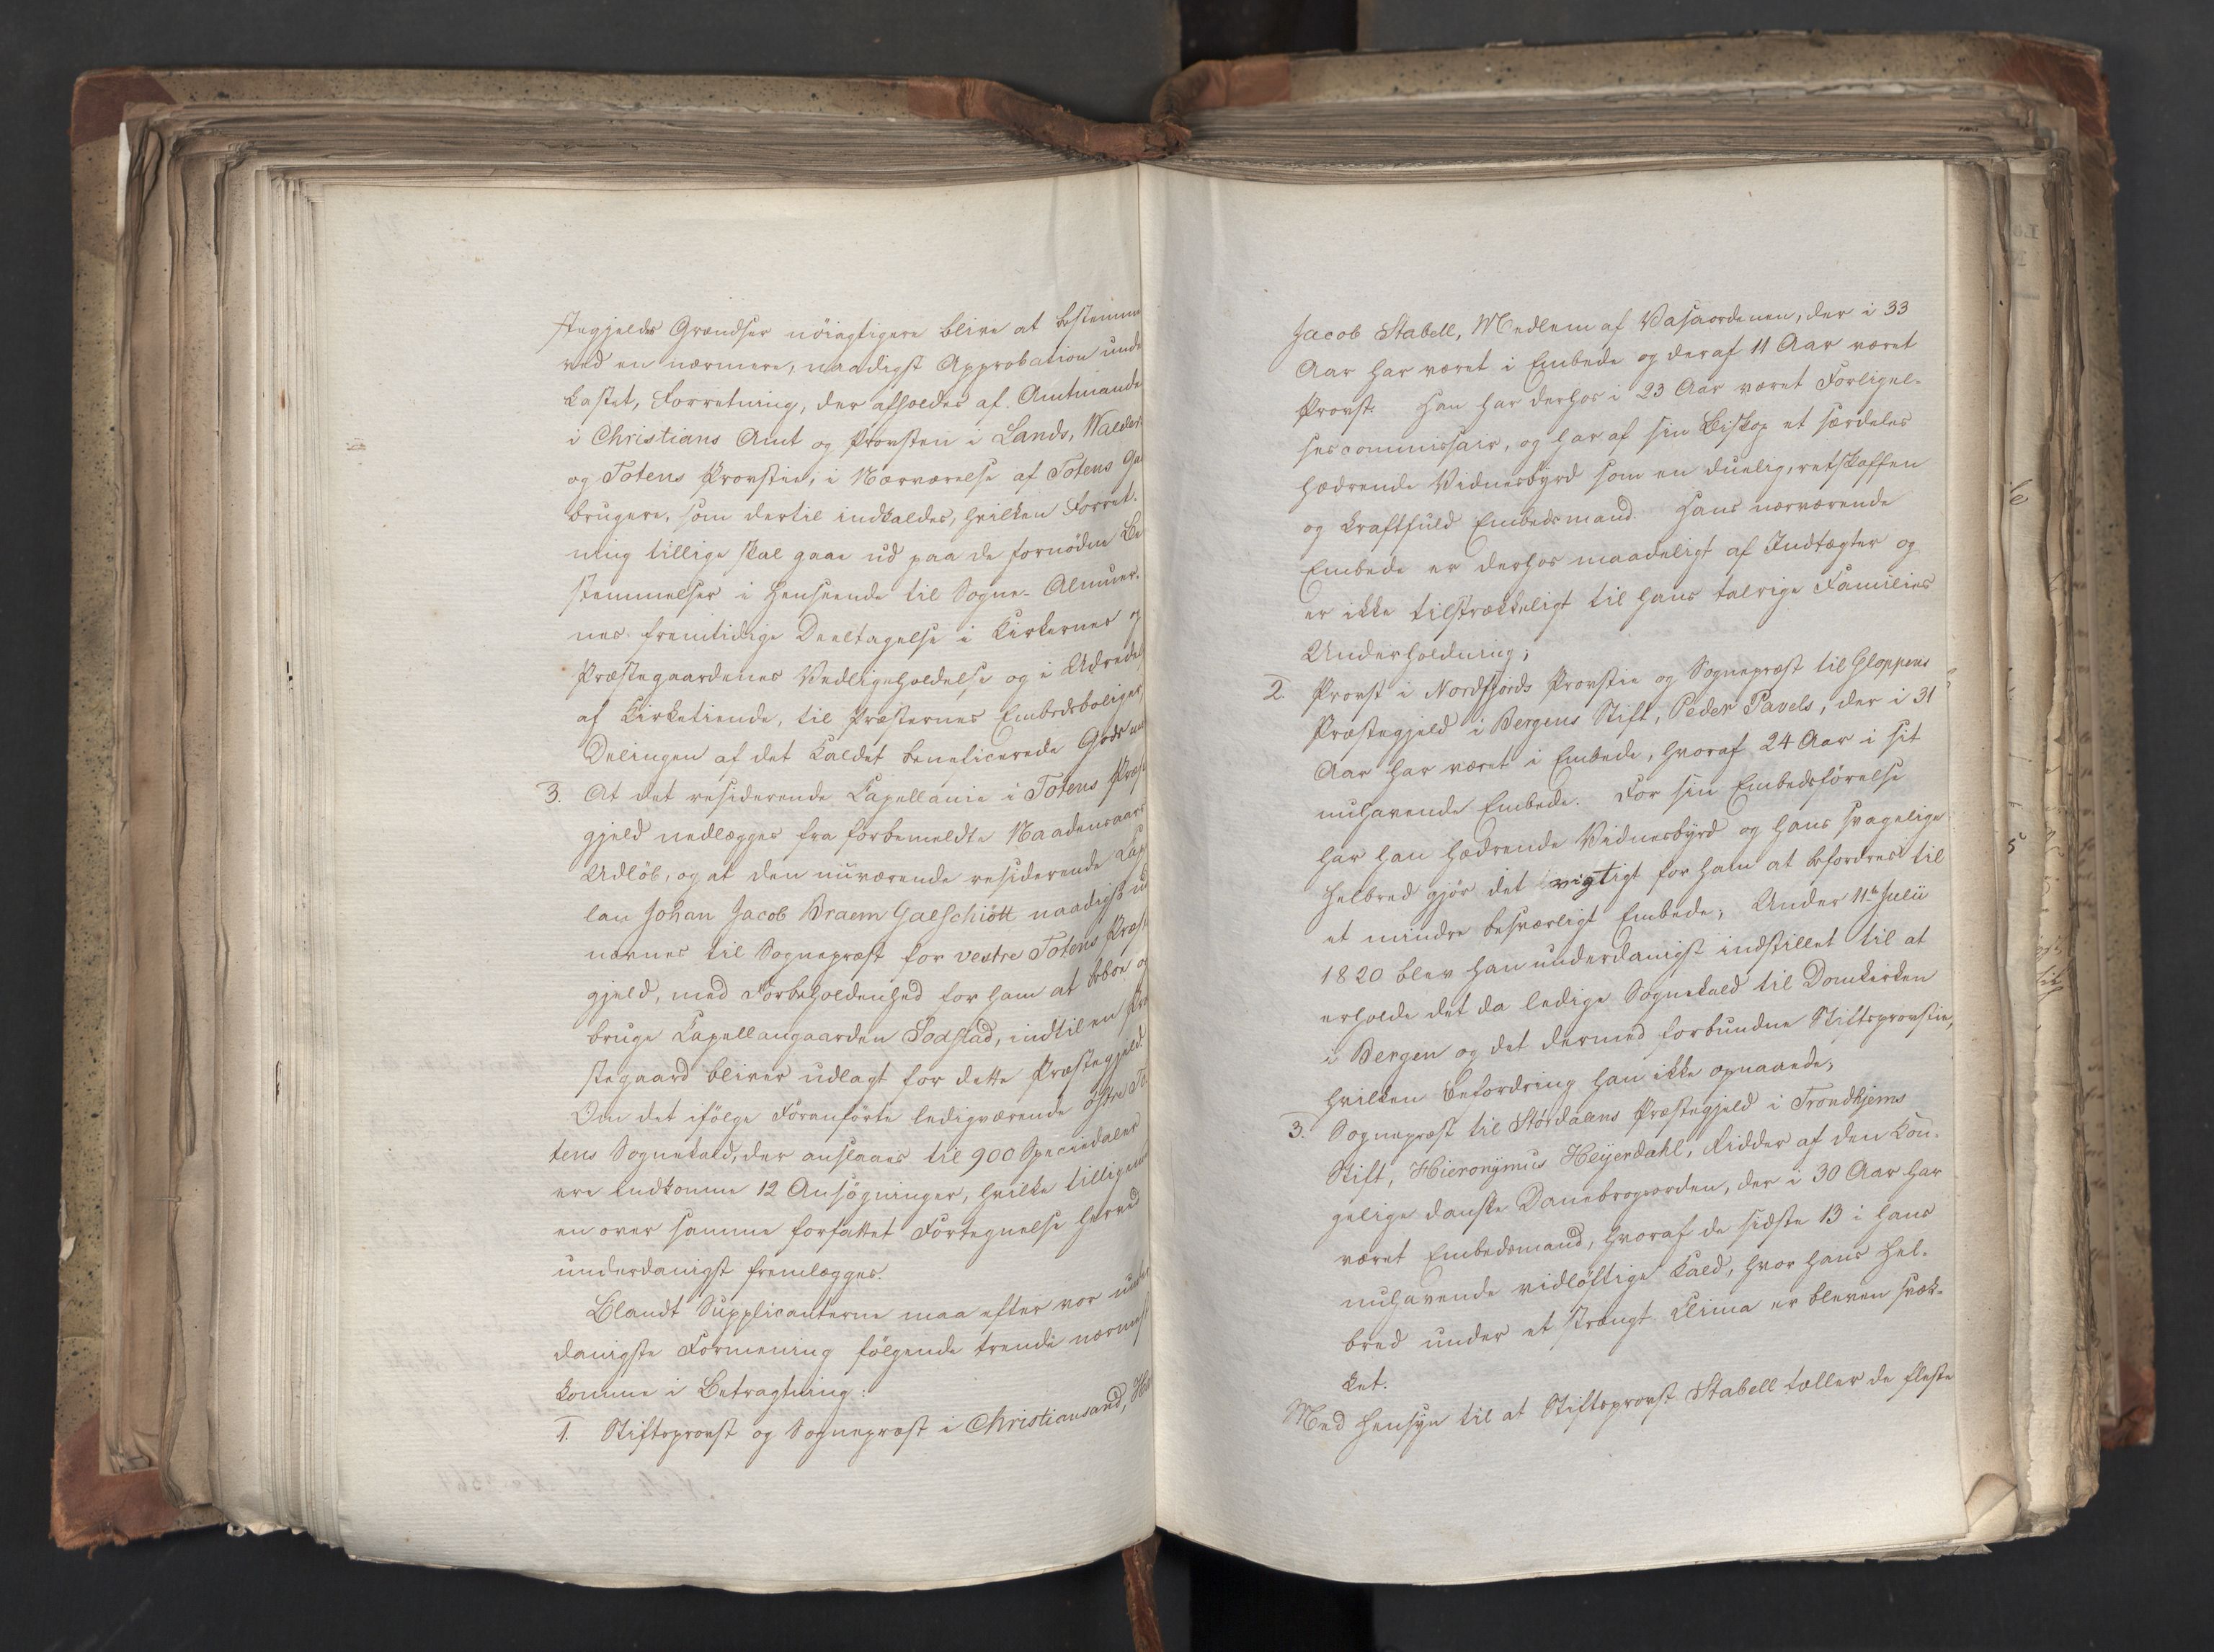 stegjelds Grændser nöiagtigere blive at bestemme
ved en nærmere, naadigst Approbation unde
kastet, Forretning, der afholdes af Amtmande
i Christians Amt og Provsten i Lands, Walders
og Totens Provstie, i Nærværelse af Totens Ga
brugere, som dertil indkaldes, hvilken Forret-
ning tillige skal gaae ud paa de fornödne Be
stemmelser i Henseende til Sogne-Almuer-
nes fremtidige Deeltagelse i Kirkernes og
Præstegaardenes Vedligeholdelse og i Udredel
af Kirketiende, til Præsternes Embedsboliger
Delingen af det Kaldet beneficerede Gods
3. At det residerende Capellanie i Totens Præst
gjeld nedlægges fra forbemeldte Naadensaars
Udlöb, og at den nuværende residerende Cap
lan Johan Jacob Braem Galschiött naadigst ud
nævnes til Sognepræst for vestre Totens Præst
gjeld, med Forbeholdenhed for ham at beboe og
bruge Capellangaarden Sodstad, indtil en Præ
stegaard bliver udlagt for dette Præstegjeld.
Om det ifölge Foranförte ledigværende östre To
tens Sognekald, der anslaaes til 900 Speciedaler
ere indkomne 12 Ansögninger, hvilke tilligem
en over samme forfattet Fortegnelse herved
underdanigst fremlægges.
Blandt Supplicanterne maa efter vor under
danigste Formening fölgende trende nærmest
komme i Betragtning:
1. Stiftsprovst og Sognepræst i Christiansand,
Jacob Stabell, Medlem af Vasaordenen, der i 33
Aar har været i Embede og deraf 11 Aar været
Provst. Han har derhos i 23 Aar været Forligel-
sescommissair, og har af sin Biskop et særdeles
hædrende Vidnesbyrd som en duelig, retskaffen
og kraftfuld Embedsmand. Hans nærværende
Embede er derhos maadeligt af Indtægter og
er ikke tilstrækkeligt til hans talrige Families
Underholdning;
2. Provst i Nordfjords Provstie og Sognepræst til Gloppens
Præstegjeld i Bergens Stift, Peder Pavels, der i 31
Aar har været i Embede, hvoraf 24 Aar i sit
nuhavende Embede. For sin Embedsförelse
har han hædrende Vidnesbyrd og hans svagelige
Helbred gjör det vigtigt for ham at befordres til
et mindre besværligt Embede; Under 11te Julii
1820 blev han underdanigst indstillet til at
erholde det da ledige Sognekald til Domkirken
i Bergen og det dermed forbundne Stiftsprovstie,
hvilken Befordring han ikke opnaaede;
3. Sognepræst til Stördalens Præstegjeld i Trondhjems
Stift, Hieronymus Heyerdahl, Ridder af den Kon-
gelige danske Danebrogsorden, der i 30 Aar har
været Embedsmand, hvoraf de sidste 13 i hans
nuhavende vidlöftige Kald, hvor hans Hel-
bred under et strængt Clima er bleven svæk-
ket.
Med Hensyn til at Stiftsprovst Stabell tæller de fleste